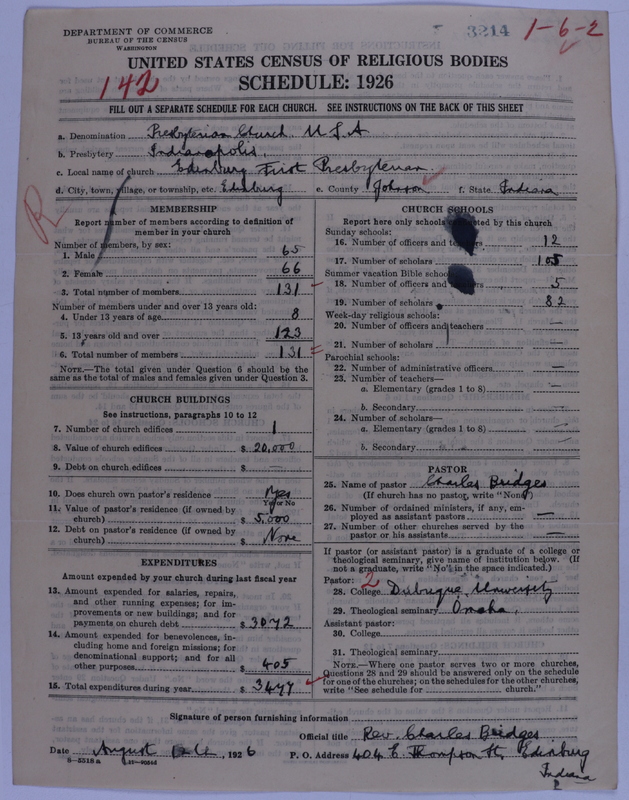 DEPARTMENT OF COMMERCE
BUREAU OF THE CENSUS
WASHINGTON
3214
1-6-2
142
UNITED STATES CENSUS OF RELIGIOUS BODIES
SCHEDULE: 1926
FILL OUT A SEPARATE SCHEDULE FOR EACH CHURCH. SEE INSTRUCTIONS ON THE BACK OF THIS SHEET
a. Denomination Presbyterian Church U S A
b. Presbytery Indianapolis,
c. Local name of church Edinburg First Presbyterian
d. City, town, village, or township, etc. Edinburg e. County Johnson f. State Indiana
R
MEMBERSHIP
Report number of members according to definition of
member in your church
Number of members, by sex:
1. Male 65
2. Female 66
3. Total number of members 131
Number of members under and over 13 years old:
4. Under 13 years of age 8
5. 13 years old and over 123
6. Total number of members 131
NOTE.—The total given under Question 6 should be the
same as the total of males and females given under Question 3.
CHURCH BUILDINGS
See instructions, paragraphs 10 to 12
7. Number of church edifices 1
8. Value of church edifices $ 20,000
9. Debt on church edifices $ —
10. Does church own pastor's residence Yes
Yes or No
11. Value of pastor's residence (if owned by
church) $ 5,000
12. Debt on pastor's residence (if owned by
church) $ None
EXPENDITURES
Amount expended by your church during last fiscal year
13. Amount expended for salaries, repairs,
and other running expenses; for im-
provements or new buildings; and for
payments on church debt $ 3072
14. Amount expended for benevolences, in-
cluding home and foreign missions; for
denominational support; and for all
other purposes $ 405
15. Total expenditures during year $ 3477
CHURCH SCHOOLS
Report here only schools conducted by this church
Sunday schools:
16. Number of officers and teachers 12
17. Number of scholars 105
Summer vacation Bible schools:
18. Number of officers and teachers 5
19. Number of scholars 82
Week-day religious schools:
20. Number of officers and teachers —
21. Number of scholars —
Parochial schools:
22. Number of administrative officers —
23. Number of teachers—
a. Elementary (grades 1 to 8) —
b. Secondary —
24. Number of scholars—
a. Elementary (grades 1 to 8) —
b. Secondary —
PASTOR
25. Name of pastor Charles Bridges
(If church has no pastor, write "None")
26. Number of ordained ministers, if any, em-
ployed as assistant pastors —
27. Number of other churches served by the
pastor or his assistants —
If pastor (or assistant pastor) is a graduate of a college or
theological seminary, give name of institution below. (If
not a graduate, write "No" in the space indicated.)
Pastor: 2
28. College Dubuque University
29. Theological seminary Omaha,
Assistant pastor:
30. College
31. Theological seminary
NOTE.—Where one pastor serves two or more churches,
Questions 28 and 29 should be answered only on the schedule
for one of the churches; on the schedules for the other churches,
write "See schedule for church."
Signature of person furnishing information
Official title Rev. Charles Bridges
Date August 1926 P. O. Address 404 E. Thompson St, Edinburg
Indiana
8—5518 a